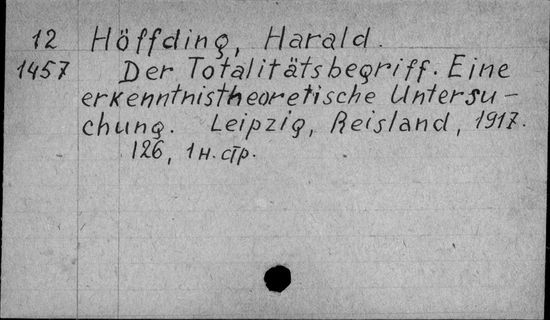 12 Höffding, Harald.
1457 Der Totalitätsbegriff. Eine
erkenntnistheoretische Untersu-
chung. Leipzig, Reisland, 1917.
126, 1 н. стр.